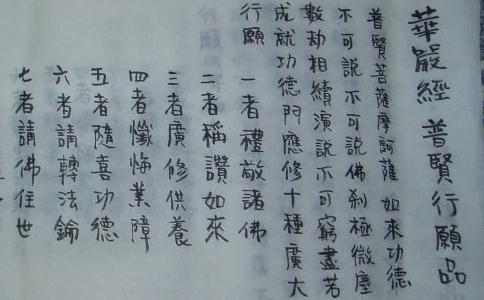 華嚴經 普賢行願品
普賢菩薩摩訶薩 如來功德
不可說不可說佛剎極微塵
數劫相續演說不可窮盡若
成就功德門應修十種廣大
行願
一者禮敬諸佛
二者稱讚如來
三者廣修供養
四者懺悔業障
五者隨喜功德
六者請轉法鑰
七者請佛住世